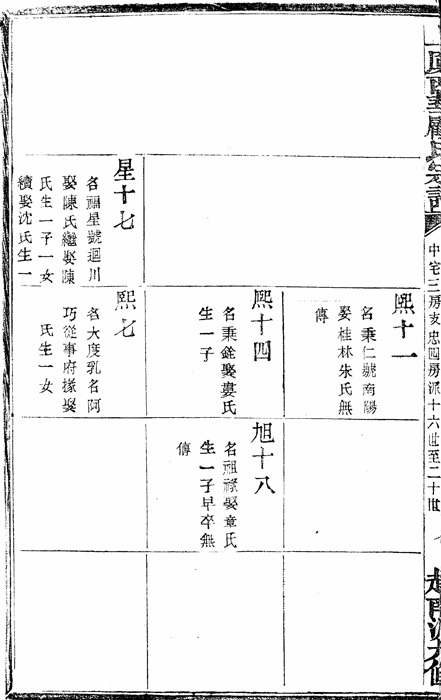 中宅三房支忠四房派十六世至二十世
熙十一
名秉仁號南陽
娶桂林朱氏無
傳
熙十四
名秉銓娶婁氏
生一子
旭十八
名祖祿娶章氏
生一子早卒無
傳
星十七
名福星號迴川
娶陳氏繼娶陳
氏生一子一女
續娶沈氏生一
熙七
名大度乳名阿
巧從事府掾娶
氏生一女